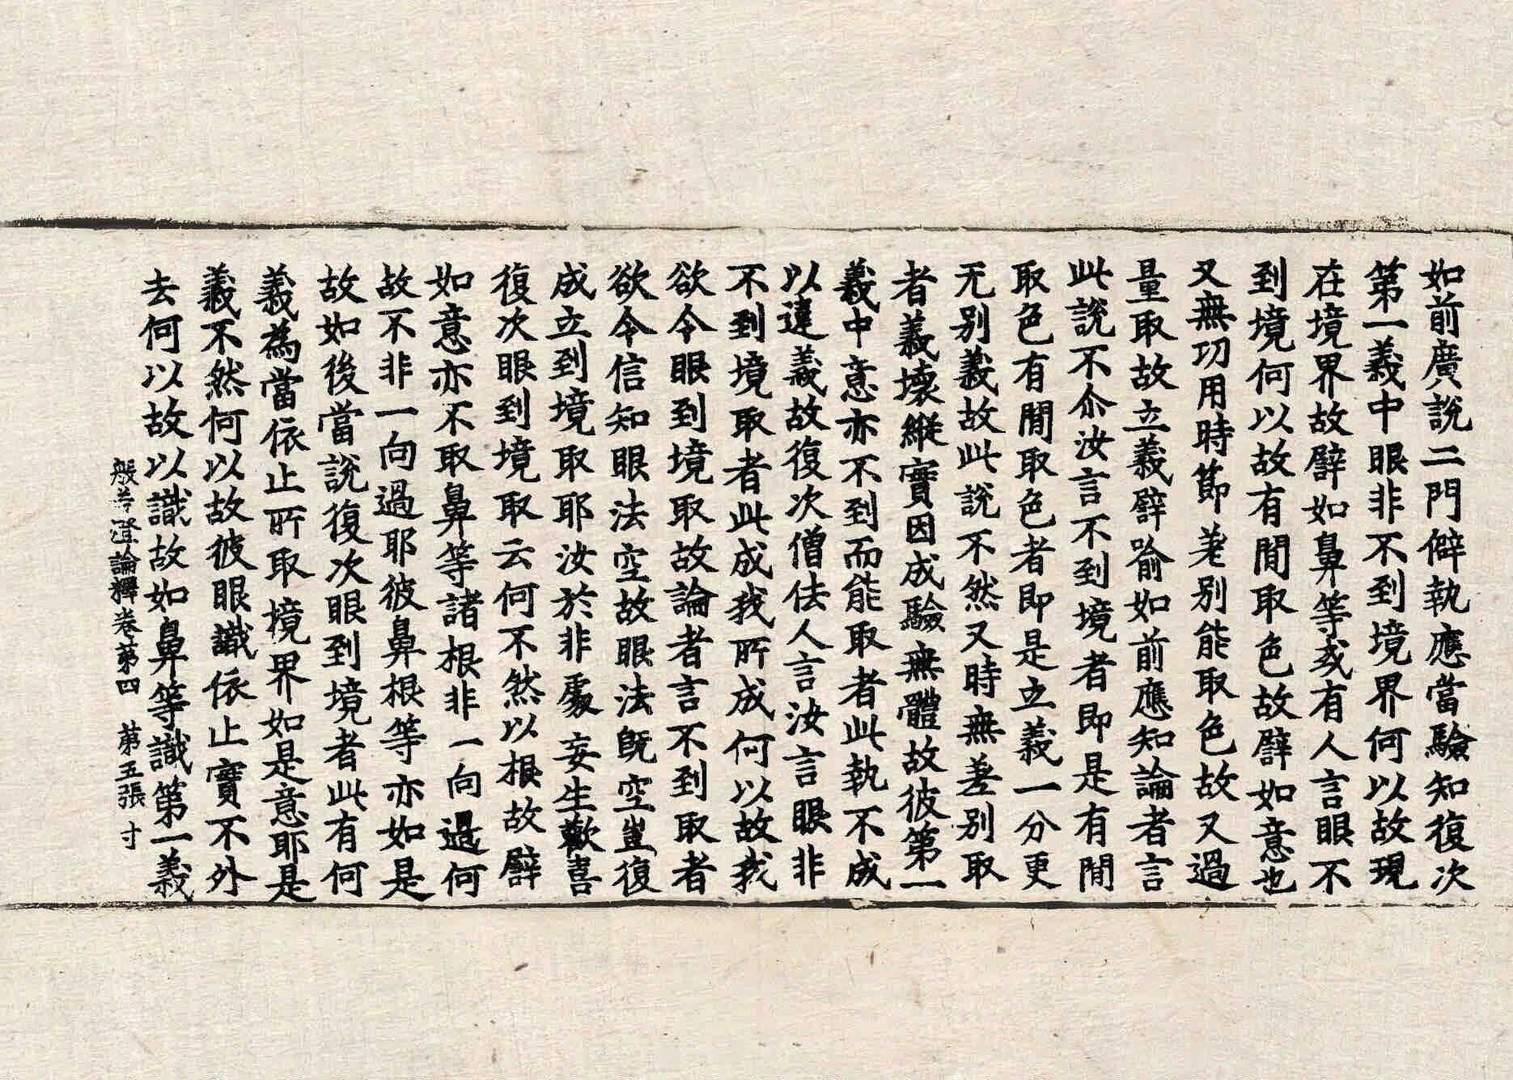 如前廣說二門僻執應當驗知復次
第一義中眼非不到境界何以故現
在境界故譬如鼻等或有人言眼不
到境何以故有閒取色故譬如意也
又無功用時節差別能取色故又過
量取故立義譬喻如前應知論者言
此說不尒汝言不到境者即是有閒
取色有閒取色者即是立義一分更
无別義故此說不然又時無差別取
者義壞縱實因成驗無體故彼第一
義中意亦不到而能取者此執不成
以違義故復次僧佉人言汝言眼非
不到境取者此成我所成何以故我
欲令眼到境取故論者言不到取者
欲令信知眼法空故眼法旣空豈復
成立到境取耶汝於非處妄生歡喜
復次眼到境取云何不然以根故譬
如意亦不取鼻等諸根非一向過何
故不非一向過耶彼鼻根等亦如是
故如後當說復次眼到境者此有何
義為當依止所取境界如是意耶是
義不然何以故彼眼識依止實不外
去何以故以識故如鼻等識第一義
般若燈論釋卷第四　第五張　寸